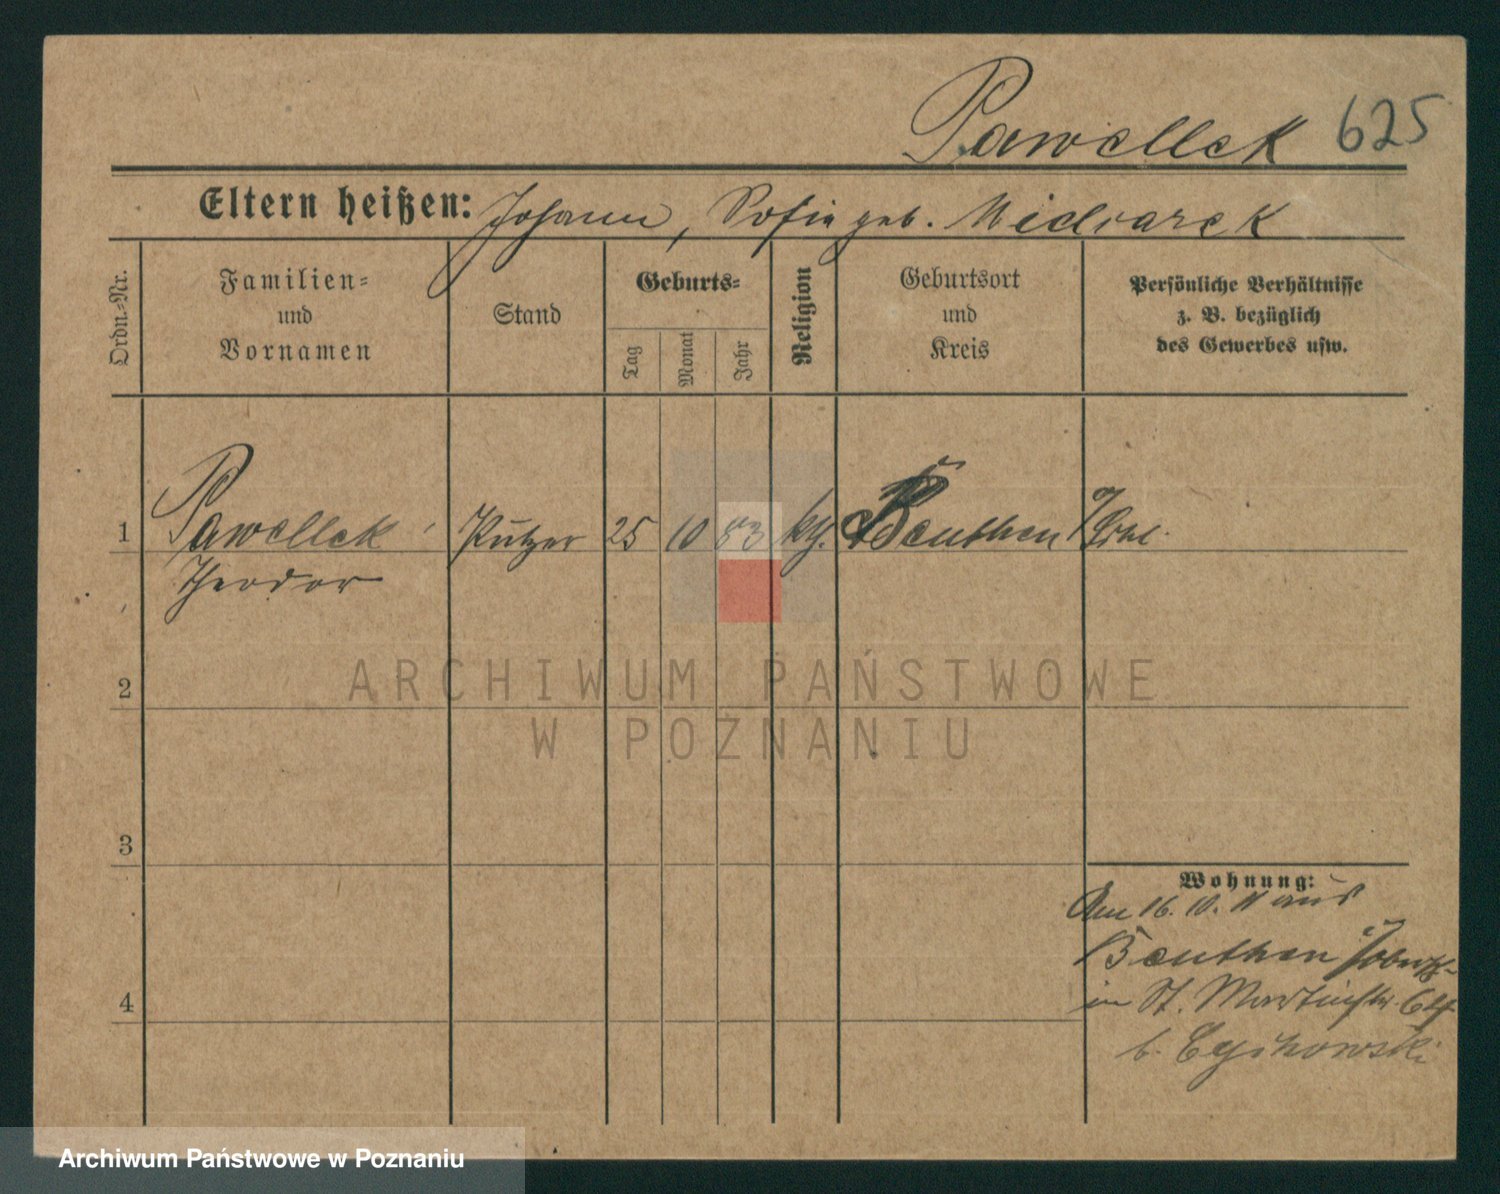 Pawellek 625
Eltern heißen: Johann, Sofie geb.
Ordn.-Nr.
Familien-
und
Vornamen
Stand
Geburts-
Tag
Monat
Jahr
Religion
Geburtsort
und
Kreis
Persönliche Verhältnisse
z. B. bezüglich
des Gewerbes usw.
1 Pawellek Putzer 25 10 83 kth. Beuthen
Theodor
2
3
4
Wohnung:
Am 16. 10. 11 aus
Beuthen
in St. Martinstr. 64
b.
ARCHIWUM PAŃSTWOWE
W POZNANIU
Archiwum Państwowe w Poznaniu